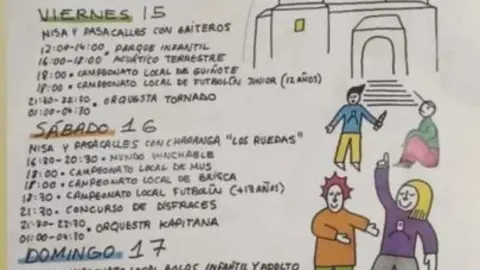 VIERNES 15
MISA Y PASACALLES CON GAITEROS
12:00-14:00 • PARQUE INFANTIL
16:00-18:00 • ACUÁTICO TERRESTRE
18:00 • CAMPEONATO LOCAL DE GUIÑOTE
18:00 • CAMPEONATO LOCAL DE FUTBOLÍN JUNIOR (12 AÑOS)
21:30-22:30 • ORQUESTA TORNADO
01:00-04:30
SÁBADO 16
MISA Y PASACALLES CON CHARANGA "LOS RUEDAS"
16:30-20:30 • MUNDO HINCHABLE
18:00 • CAMPEONATO LOCAL DE MUS
18:00 • CAMPEONATO LOCAL DE BRISCA
18:30 • CAMPEONATO LOCAL FUTBOLÍN (+13 AÑOS)
21:30 • CONCURSO DE DISFRACES
21:30-22:30 • ORQUESTA KAPITANA
01:00-04:30
DOMINGO 17
LOCAL BOLOS INFANTIL Y ADULTO